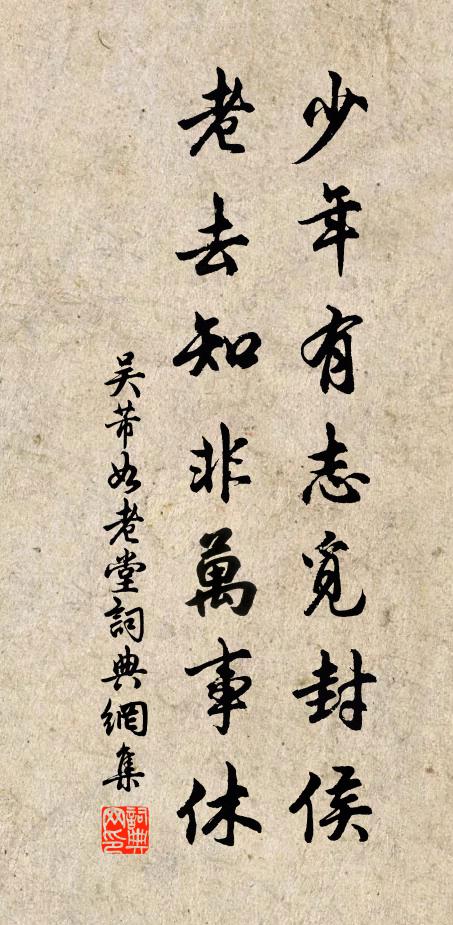 少年有志覓封侯
老去知非萬事休
吳芾如老堂詞典網集
詞典網印